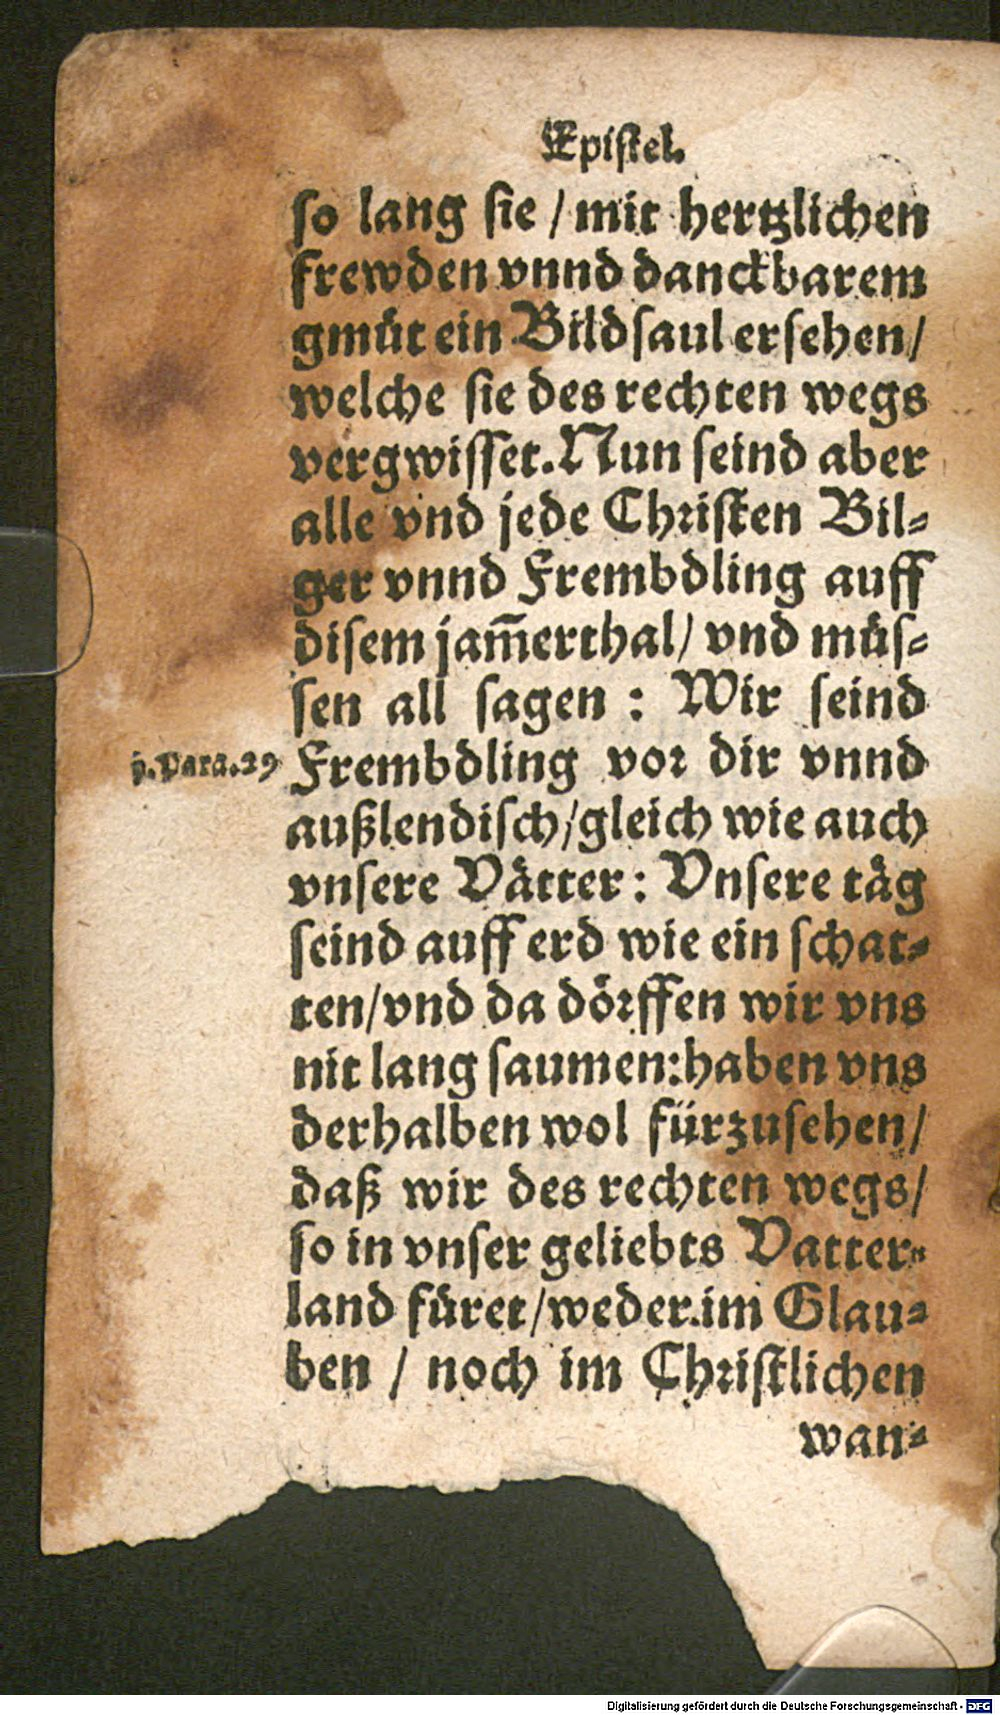 Epistel.
so lang sie / mit hertzlichen
frewden vnnd danckbarem
gmüt ein Bildsaul ersehen /
welche sie des rechten wegs
vergwisset. Nun seind aber
alle vnd jede Christen Bil-
ger vnnd Frembdling auff
disem jam̄erthal / vnd müs-
sen all sagen : Wir seind
j. Para. 29 Frembdling vor dir vnnd
außlendisch / gleich wie auch
vnsere Vätter : Vnsere täg
seind auff erd wie ein schat-
ten / vnd da dörffen wir vns
nit lang saumen: haben vns
derhalben wol fürzusehen /
daß wir des rechten wegs /
so in vnser geliebts Vatter-
land füret / weder im Glau-
ben / noch im Christlichen
wan-
Digitalisierung gefördert durch die Deutsche Forschungsgemeinschaft - DFG